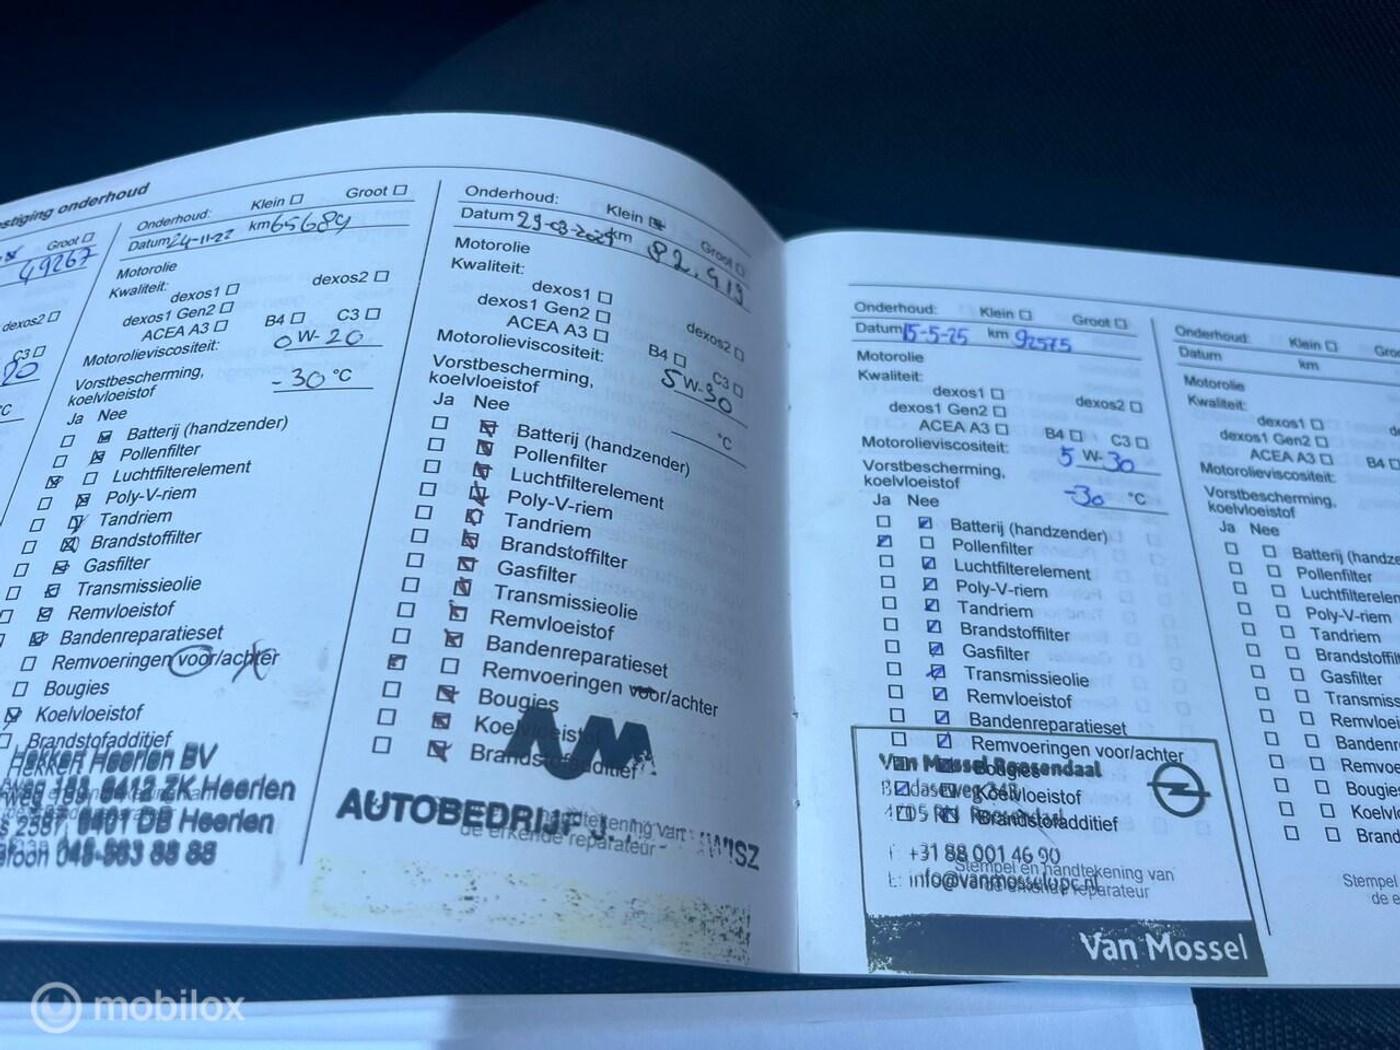 stiging onderhoud
Groot
49267
dexos2
C3
20
°C
Onderhoud: Klein Groot
Datum 24-11-22 km 65684
Motorolie
Kwaliteit:
dexos1 dexos2
dexos1 Gen2
ACEA A3 B4 C3
Motorolieviscositeit: 0W-20
Vorstbescherming,
koelvloeistof -30 °C
Ja Nee
Batterij (handzender)
Pollenfilter
Luchtfilterelement
Poly-V-riem
Tandriem
Brandstoffilter
Gasfilter
Transmissieolie
Remvloeistof
Bandenreparatieset
Remvoeringen voor/achter
Bougies
Koelvloeistof
Brandstofadditief
Hekken Heerlen BV
6412 ZK Heerlen
2587, 6401 DB Heerlen
Onderhoud: Klein Groot
Datum km 82.419
Motorolie
Kwaliteit:
dexos1
dexos1 Gen2 dexos2
ACEA A3 B4 C3
Motorolieviscositeit: 5W-30
Vorstbescherming,
koelvloeistof °C
Ja Nee
Batterij (handzender)
Pollenfilter
Luchtfilterelement
Poly-V-riem
Tandriem
Brandstoffilter
Gasfilter
Transmissieolie
Remvloeistof
Bandenreparatieset
Remvoeringen voor/achter
Bougies
Koelvloeistof
Brandstofadditief
AUTOBEDRIJF J.
handtekening van
de erkende reparateur
Onderhoud: Klein Groot
Datum 15-5-25 km 92575
Motorolie
Kwaliteit:
dexos1 dexos2
dexos1 Gen2
ACEA A3 B4 C3
Motorolieviscositeit: 5W-30
Vorstbescherming,
koelvloeistof -30 °C
Ja Nee
Batterij (handzender)
Pollenfilter
Luchtfilterelement
Poly-V-riem
Tandriem
Brandstoffilter
Gasfilter
Transmissieolie
Remvloeistof
Bandenreparatieset
Remvoeringen voor/achter
Bougies
Koelvloeistof
Brandstofadditief
Van Mossel Roosendaal
4705 RN Roosendaal
+31 88 001 46 90
Stempel en handtekening van
info@vanmosselupc.nl
de erkende reparateur
Van Mossel
Onderhoud: Klein Groo
Datum km
Motorolie
Kwaliteit:
dexos1
dexos1 Gen2
ACEA A3 B4
Motorolieviscositeit:
Vorstbescherming,
koelvloeistof
Ja Nee
Batterij (handze
Pollenfilter
Luchtfilterelem
Poly-V-riem
Tandriem
Brandstoffilt
Gasfilter
Transmiss
Remvloei
Banden
Remvoe
Bougies
Koelvlo
Brand
Stempel
de e
mobilox